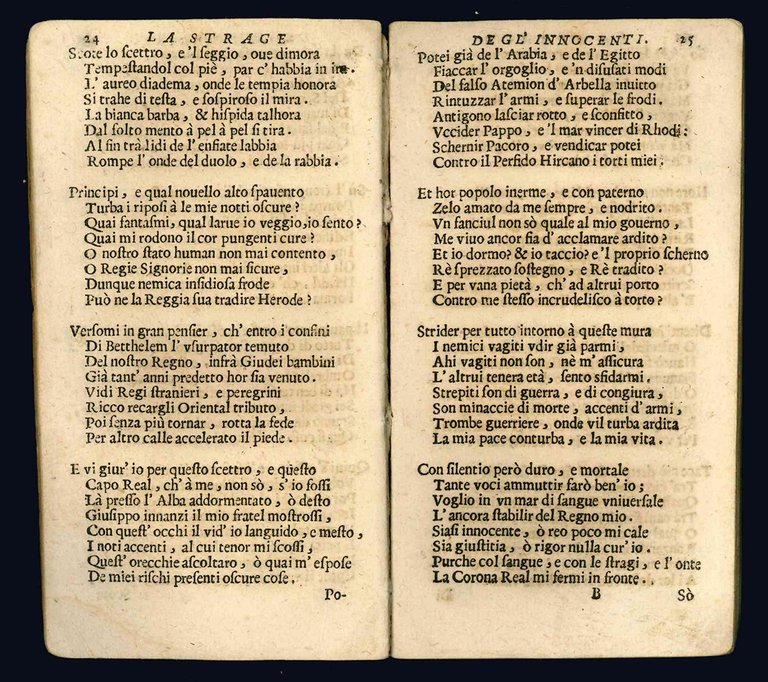 24 LA STRAGE
Scote lo scettro, e 'l seggio, oue dimora
Tempestandol col piè, par c' habbia in ira.
L' aureo diadema, onde le tempia honora
Si trahe di testa, e sospiroso il mira.
La bianca barba, & hispida talhora
Dal folto mento à pel à pel si tira.
Al fin trà lidi de l' enfiate labbia
Rompe l' onde del duolo, e de la rabbia.
Principi, e qual nouello alto spauento
Turba i riposi à le mie notti oscure?
Quai fantasmi, qual larue io veggio, io sento?
Quai mi rodono il cor pungenti cure?
O nostro stato human non mai contento,
O Regie Signorie non mai sicure,
Dunque nemica insidiosa frode
Può ne la Reggia sua tradire Herode?
Versomi in gran pensier, ch' entro i confini
Di Betthelem l' vsurpator temuto
Del nostro Regno, infrà Giudei bambini
Già tant' anni predetto hor sia venuto.
Vidi Regi stranieri, e peregrini
Ricco recargli Oriental tributo,
Poi senza più tornar, rotta la fede
Per altro calle accelerato il piede.
E vi giur' io per questo scettro, e questo
Capo Real, ch' à me, non sò, s' io fossi
Là presso l' Alba addormentato, ò desto
Giusippo innanzi il mio fratel mostrossi,
Con quest' occhi il vid' io languido, e mesto,
I noti accenti, al cui tenor mi scossi,
Quest' orecchie ascoltaro, ò quai m' espose
De miei rischi presenti oscure cose.
Po-
DEGL' INNOCENTI. 25
Potei già de l' Arabia, e de l' Egitto
Fiaccar l' orgoglio, e 'n disusati modi
Del falso Atemion d' Arbella inuitto
Rintuzzar l' armi, e superar le frodi.
Antigono lasciar rotto, e sconfitto,
Vccider Pappo, e 'l mar vincer di Rhodi:
Schernir Pacoro, e vendicar potei
Contro il Perfido Hircano i torti miei.
Et hor popolo inerme, e con paterno
Zelo amato da me sempre, e nodrito.
Vn fanciul non sò quale al mio gouerno,
Me viuo ancor fia d' acclamare ardito?
Et io dormo? & io taccio? e 'l proprio scherno
Rè sprezzato sostegno, e Rè tradito?
E per vana pietà, ch' ad altrui porto
Contro me stesso incrudelisco à torto?
Strider per tutto intorno à queste mura
I nemici vagiti vdir già parmi,
Ahi vagiti non son, nè m' assicura
L' altrui tenera età, sento sfidarmi.
Strepiti son di guerra, e di congiura,
Son minaccie di morte, accenti d' armi,
Trombe guerriere, onde vil turba ardita
La mia pace conturba, e la mia vita.
Con silentio però duro, e mortale
Tante voci ammuttir farò ben' io;
Voglio in vn mar di sangue vniuersale
L' ancora stabilir del Regno mio.
Siasi innocente, ò reo poco mi cale
Sia giustitia, ò rigor nulla cur' io.
Purche col sangue, e con le stragi, e l' onte
La Corona Real mi fermi in fronte.
B Sò